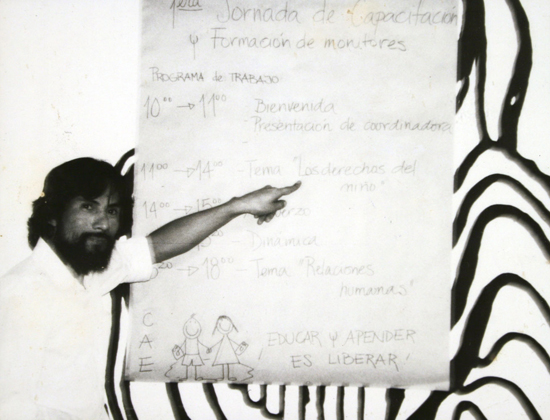 1era Jornada de Capacitación
y Formación de monitores
PROGRAMA de TRABAJO
10⁰⁰ → 11⁰⁰ Bienvenida
- Presentación de coordinadora
11⁰⁰ → 14⁰⁰ - Tema "Los derechos del
niño"
14⁰⁰ → 15⁰⁰
- Dinámica
→ 18⁰⁰ - Tema "Relaciones
humanas"
C
A
E
¡EDUCAR Y APENDER
ES LIBERAR!